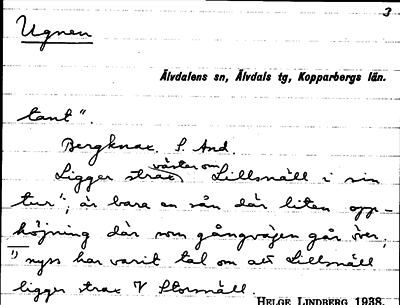 3
Ugnen
Älvdalens sn, Älvdals tg, Kopparbergs län.
tant".
Bergknax. S. And.
väster om
Ligger strax Lillsnäll i sin
tur¹⁾, är bara en sån där liten upp-
höjning där som gångvägen går över,
¹⁾ nyss har varit tal om att Lillsnäll
ligger strax V Storsnäll.
HELGE LINDBERG 1938.